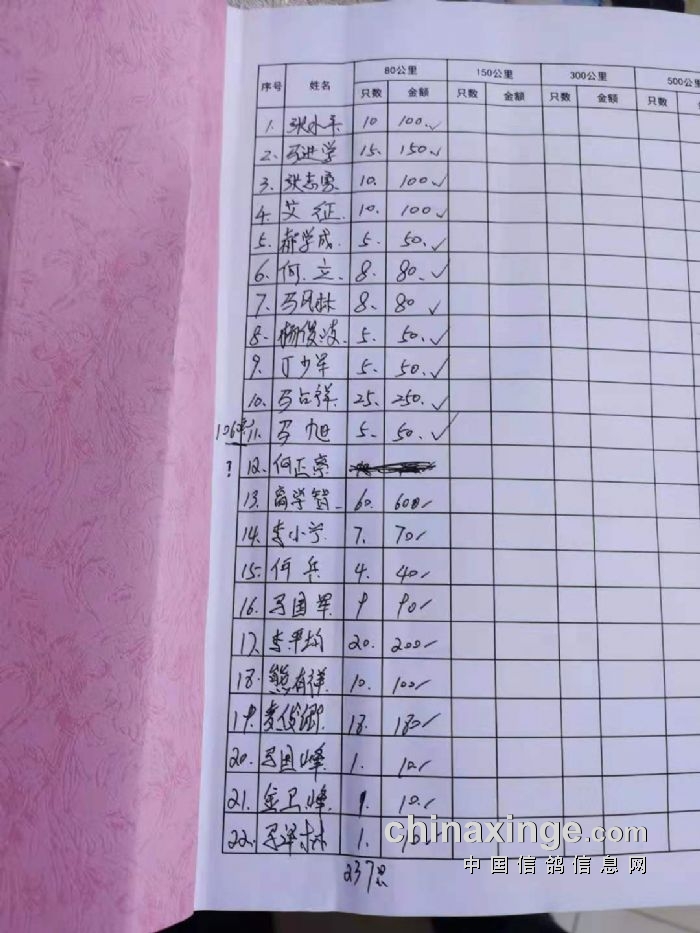 80公里 150公里 300公里 500公里
序号 姓名 只数 金额 只数 金额 只数 金额 只数
1. 张永平 10 100.✓
2. 马进学 15. 150✓
3. 张志勇 10. 100✓
4. 艾征. 10. 100✓
5. 郝学成. 5. 50.✓
6. 何立 8. 80.✓
7. 马风林 8. 80✓
8. 杨俊岐 5. 50.✓
9. 丁少军 5. 50.✓
10. 马占祥 25. 250.✓
11. 马旭 5. 50.✓
? 12. 何正荣
13. 高学智 60. 600✓
14. 李小宁 7. 70✓
15. 何兵 4. 40✓
16. 马国军 9 90✓
17. 李平均 20. 200✓
18. 熊有祥 10. 100✓
19. 18. 180✓
20. 马国峰 1. 10✓
21. 金卫峰 1. 10✓
22. 1.
237只
chinaxinge.com
中国信鸽信息网